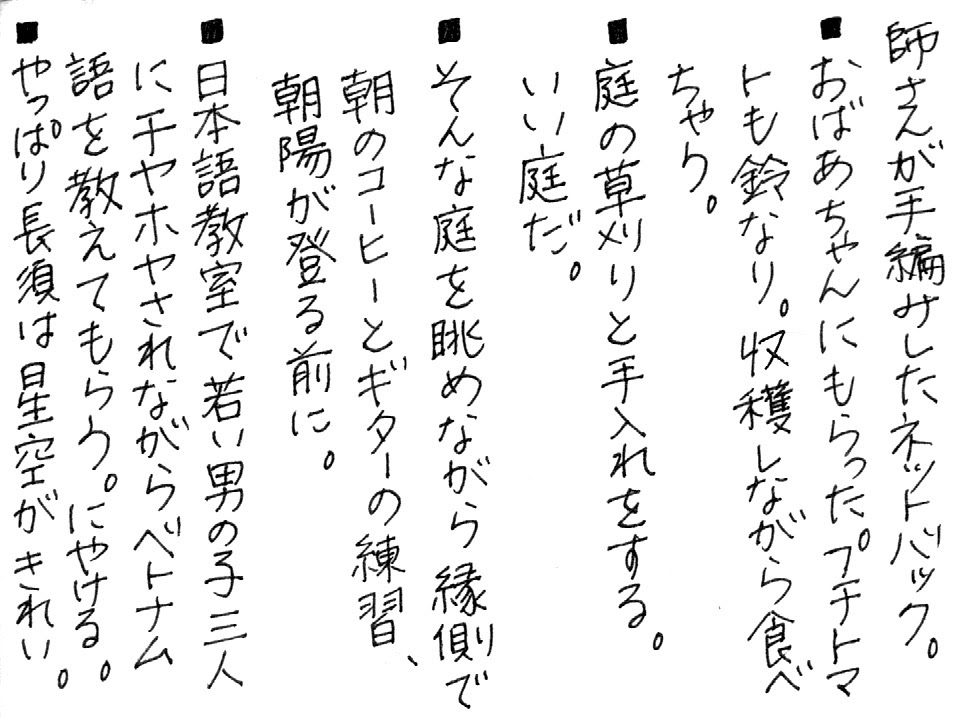 師さんが手編みしたネットバック。
■おばあちゃんにもらったプチトマ
トも鈴なり。収穫しながら食べ
ちゃう。
■庭の草刈りと手入れをする。
いい庭だ。
■そんな庭を眺めながら縁側で
朝のコーヒーとギターの練習、
朝陽が登る前に。
■日本語教室で若い男の子三人
にチヤホヤされながらベトナム
語を教えてもらう。にやける。
■やっぱり長須は星空がきれい。